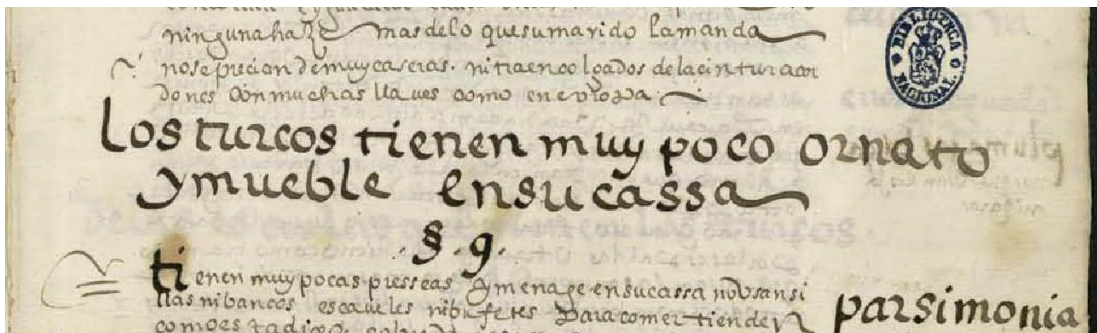 ninguna haze mas delo que su marido la manda
nose precian de muy caseras. ni traen colgados dela cintura cor
dones con muchas llaues como en europa
Los turcos tienen muy poco ornato
y mueble en su cassa
§ 9
tienen muy pocas presseas y menage en su cassa no vsan si
llas ni bancos escaueles ni bufetes para comer tienden
como esta dicho
parsimonia
BIBLIOTECA NACIONAL